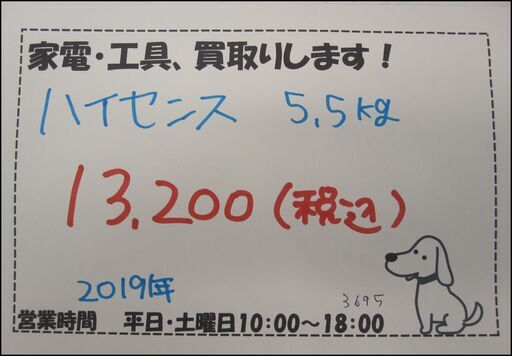 家電・工具、買取りします！
ハイセンス 5,5kg
13,200(税込)
2019年
3695
営業時間 平日・土曜日10:00～18:00